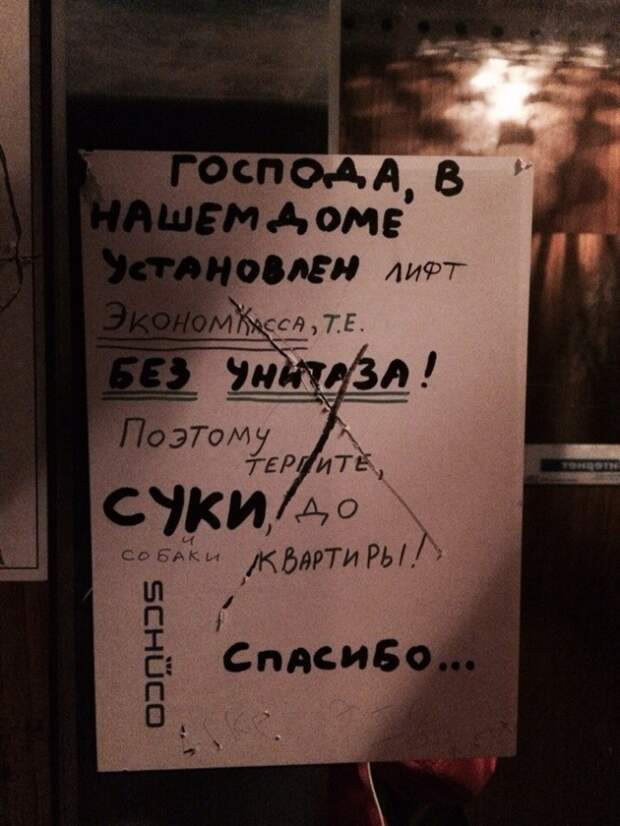 ГОСПОДА, В
НАШЕМ ДОМЕ
УСТАНОВЛЕН ЛИФТ
ЭКОНОМКЛАССА, Т.Е.
БЕЗ УНИТАЗА!
ПОЭТОМУ
ТЕРПИТЕ,
СУКИ, ДО
И
СОБАКИ КВАРТИРЫ!
SCHÜCO
СПАСИБО...